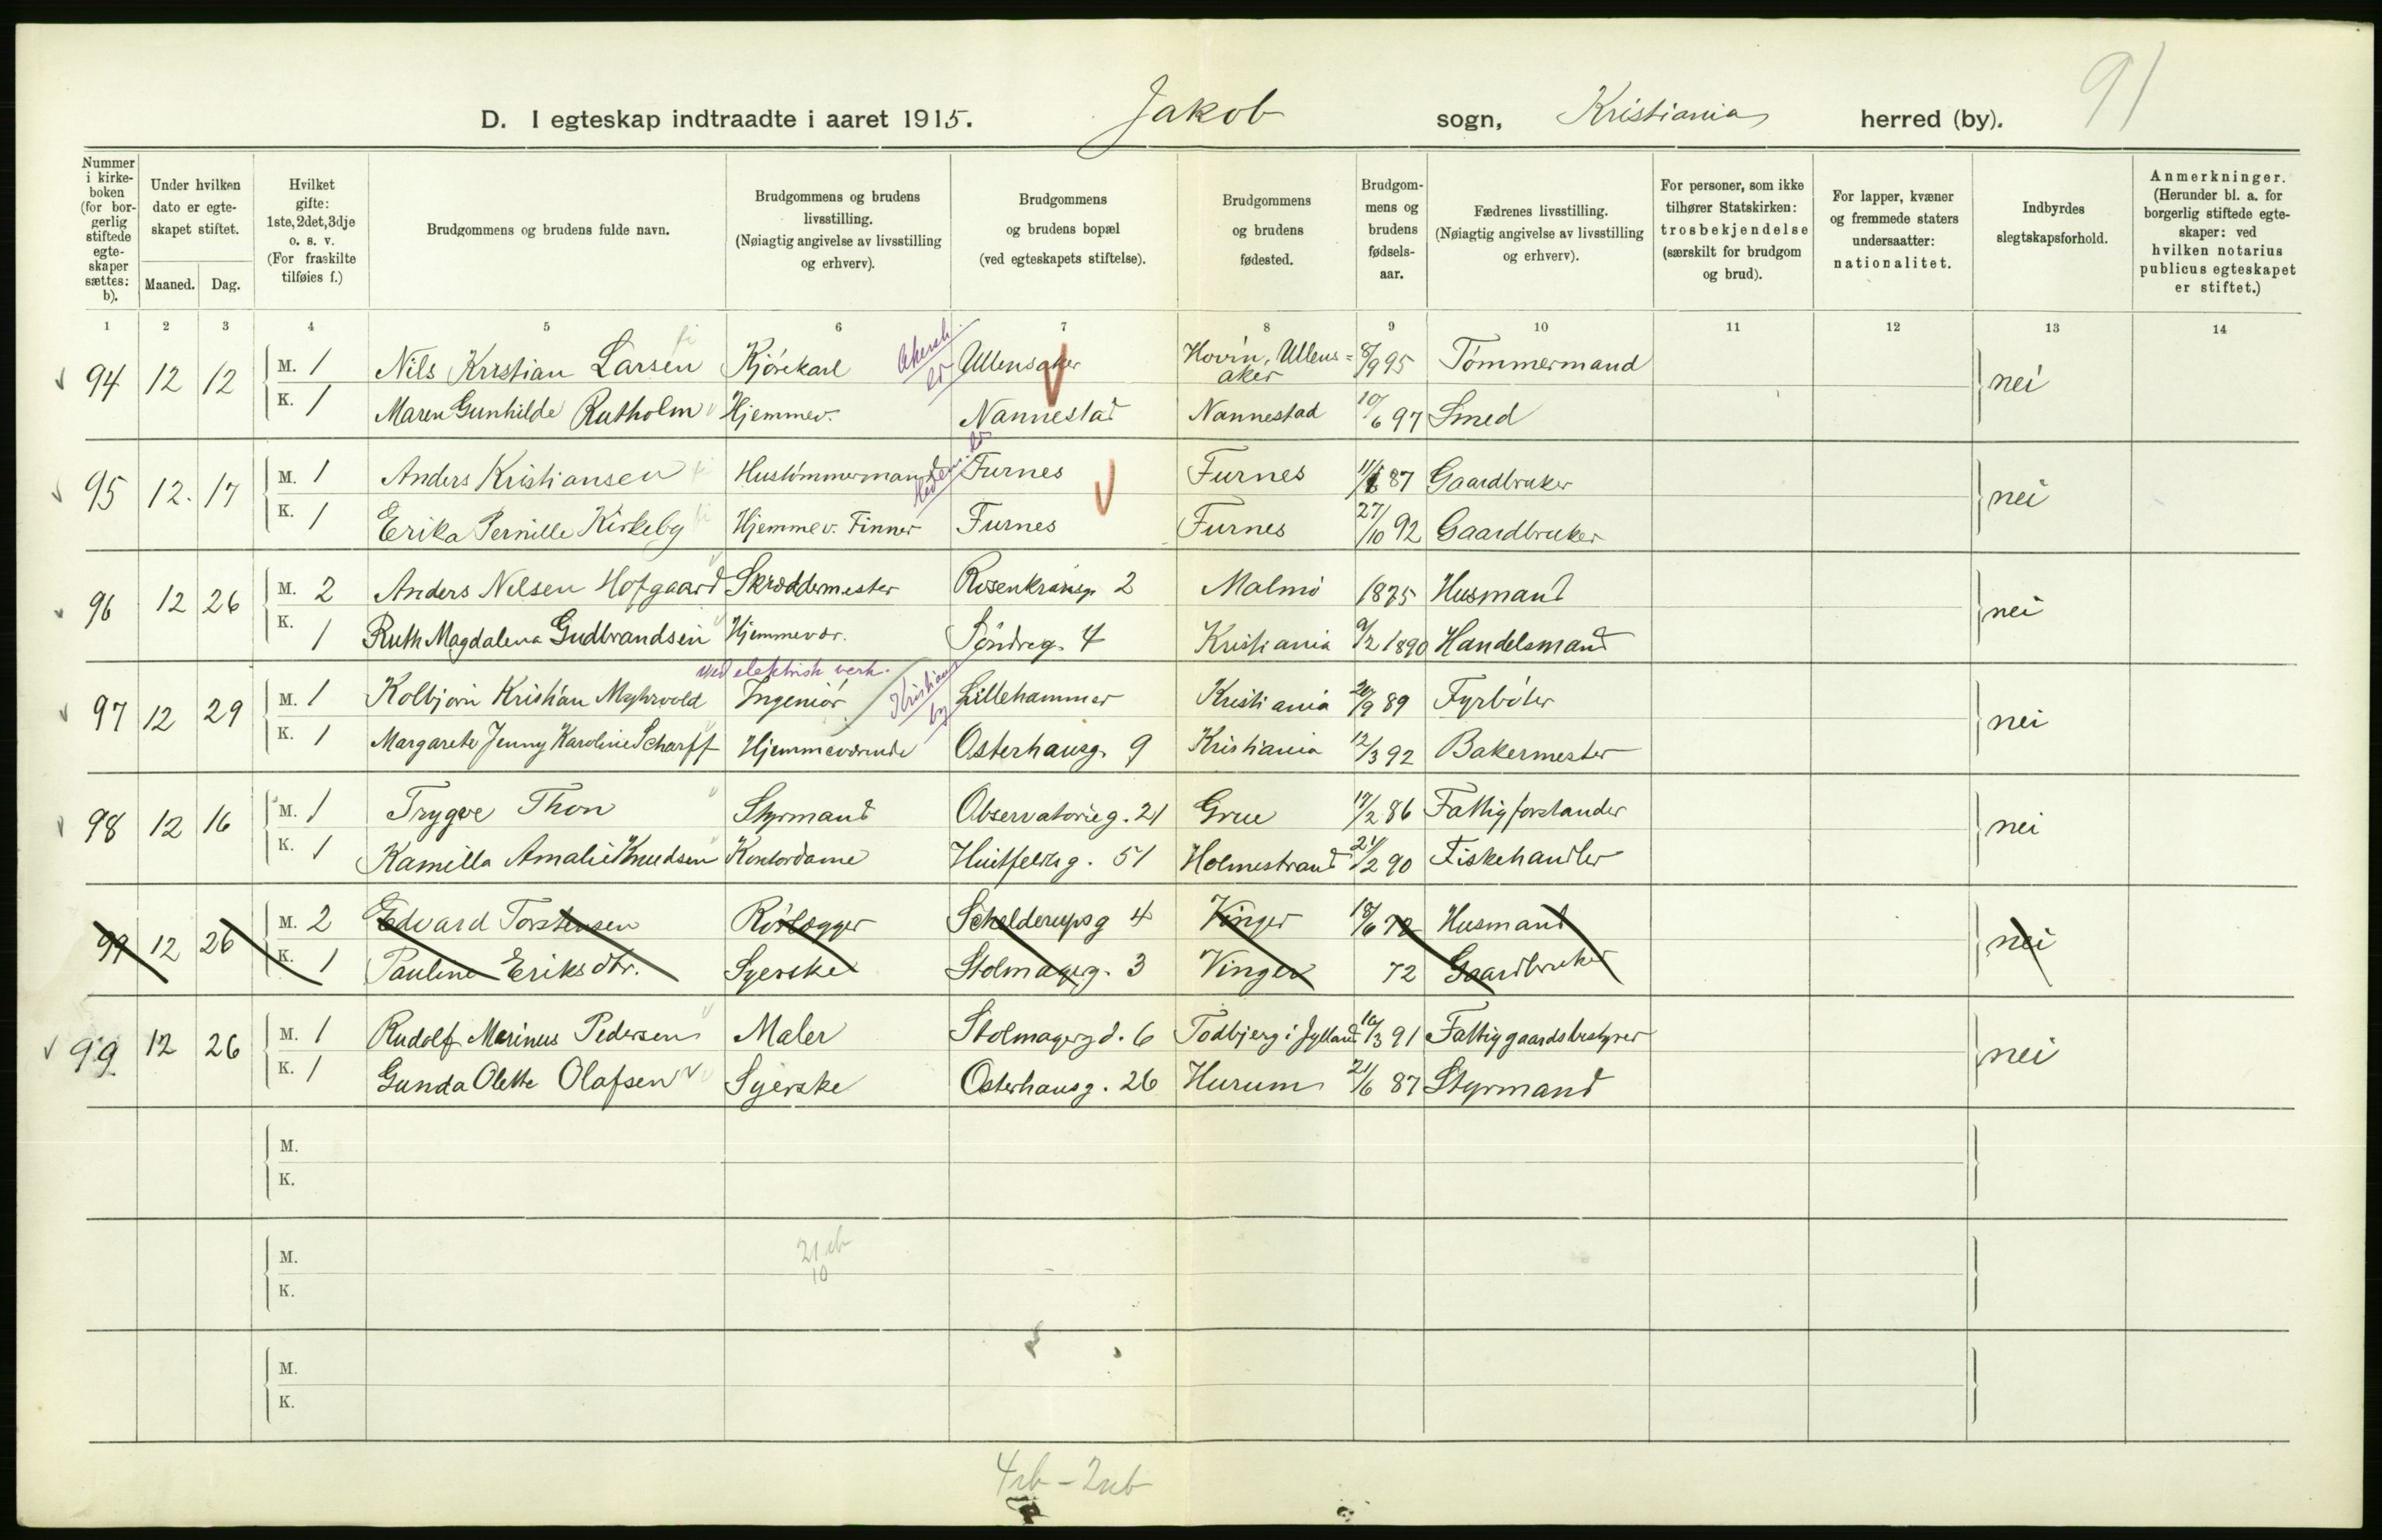 91
D. I egteskap indtraadte i aaret 1915. Jakob sogn, Kristiania herred (by).
Nummer i kirkeboken (for borgerlig stiftede egteskaper sættes: b).
Under hvilken dato er egteskapet stiftet.
Maaned. Dag.
Hvilket gifte: 1ste, 2det, 3dje o. s. v. (For fraskilte tilføies f.)
Brudgommens og brudens fulde navn.
Brudgommens og brudens livsstilling. (Nøiagtig angivelse av livsstilling og erhverv).
Brudgommens og brudens bopæl (ved egteskapets stiftelse).
Brudgommens og brudens fødested.
Brudgommens og brudens fødselsaar.
Fædrenes livsstilling. (Nøiagtig angivelse av livsstilling og erhverv).
For personer, som ikke tilhører Statskirken: trosbekjendelse (særskilt for brudgom og brud).
For lapper, kvæner og fremmede staters undersaatter: nationalitet.
Indbyrdes slegtskapsforhold.
Anmerkninger. (Herunder bl. a. for borgerlig stiftede egteskaper: ved hvilken notarius publicus egteskapet er stiftet.)
1 2 3 4 5 6 7 8 9 10 11 12 13 14
94 12 12 M. 1 Nils Kristian Larsen Kjörekarl Akersh. Ullensaker Hovin, Ullensaker 8/9 95 Tömmermand nei
K. 1 Maren Gunhilde Rutholm Hjemmev. Nannestad Nannestad 10/6 97 Smed
95 12. 17 M. 1 Anders Kristiansen Hustömmermand Furnes Furnes 87 Gaardbruker nei
K. 1 Erika Pernille Kirkeby Hjemmev. Finner Furnes Furnes 27/10 92 Gaardbruker
96 12 26 M. 2 Anders Nilsen Hofgaard Skræddermester Rosenkransg. 2 Malmö 1875 Husmand nei
K. 1 Ruth Magdalena Gudbrandsen Hjemmevær. Söndreg. 4 Kristiania 9/2 1890 Handelsmand
ved elektrisk verk.
97 12 29 M. 1 Kolbjörn Kristian Myhrvold Ingeniör Kristians by Lillehammer Kristiania 20/9 89 Fyrböter nei
K. 1 Margarete Jenny Karoline Scharff Hjemmeværende Osterhausg. 9 Kristiania 12/3 92 Bakermester
98 12 16 M. 1 Trygve Thon Styrmand Observatorieg. 21 Grue 17/2 86 Fattigforstander nei
K. 1 Kamilla Amalie Knudsen Kontordame Huitfeldtsg. 51 Holmestrand 21/2 90 Fiskehandler
99 12 26 M. 2 Edvard Torstensen Rörlægger Schelderupsg 4 Vinger 18/6 72 Husmand nei
K. 1 Pauline Eriksdtr. Syerske Stolmagerg. 3 Vinger 72 Gaardbruker
99 12 26 M. 1 Rudolf Marinus Pedersen Maler Stolmagergd. 6 Todbjerg i Jylland 16/3 91 Fattiggaardsbestyrer nei
K. 1 Gunda Olette Olafsen Syerske Osterhausg. 26 Hurum 21/6 87 Styrmand
M.
K.
M. 21 ub
K. 10
M.
K.
4 ub - 2 ub